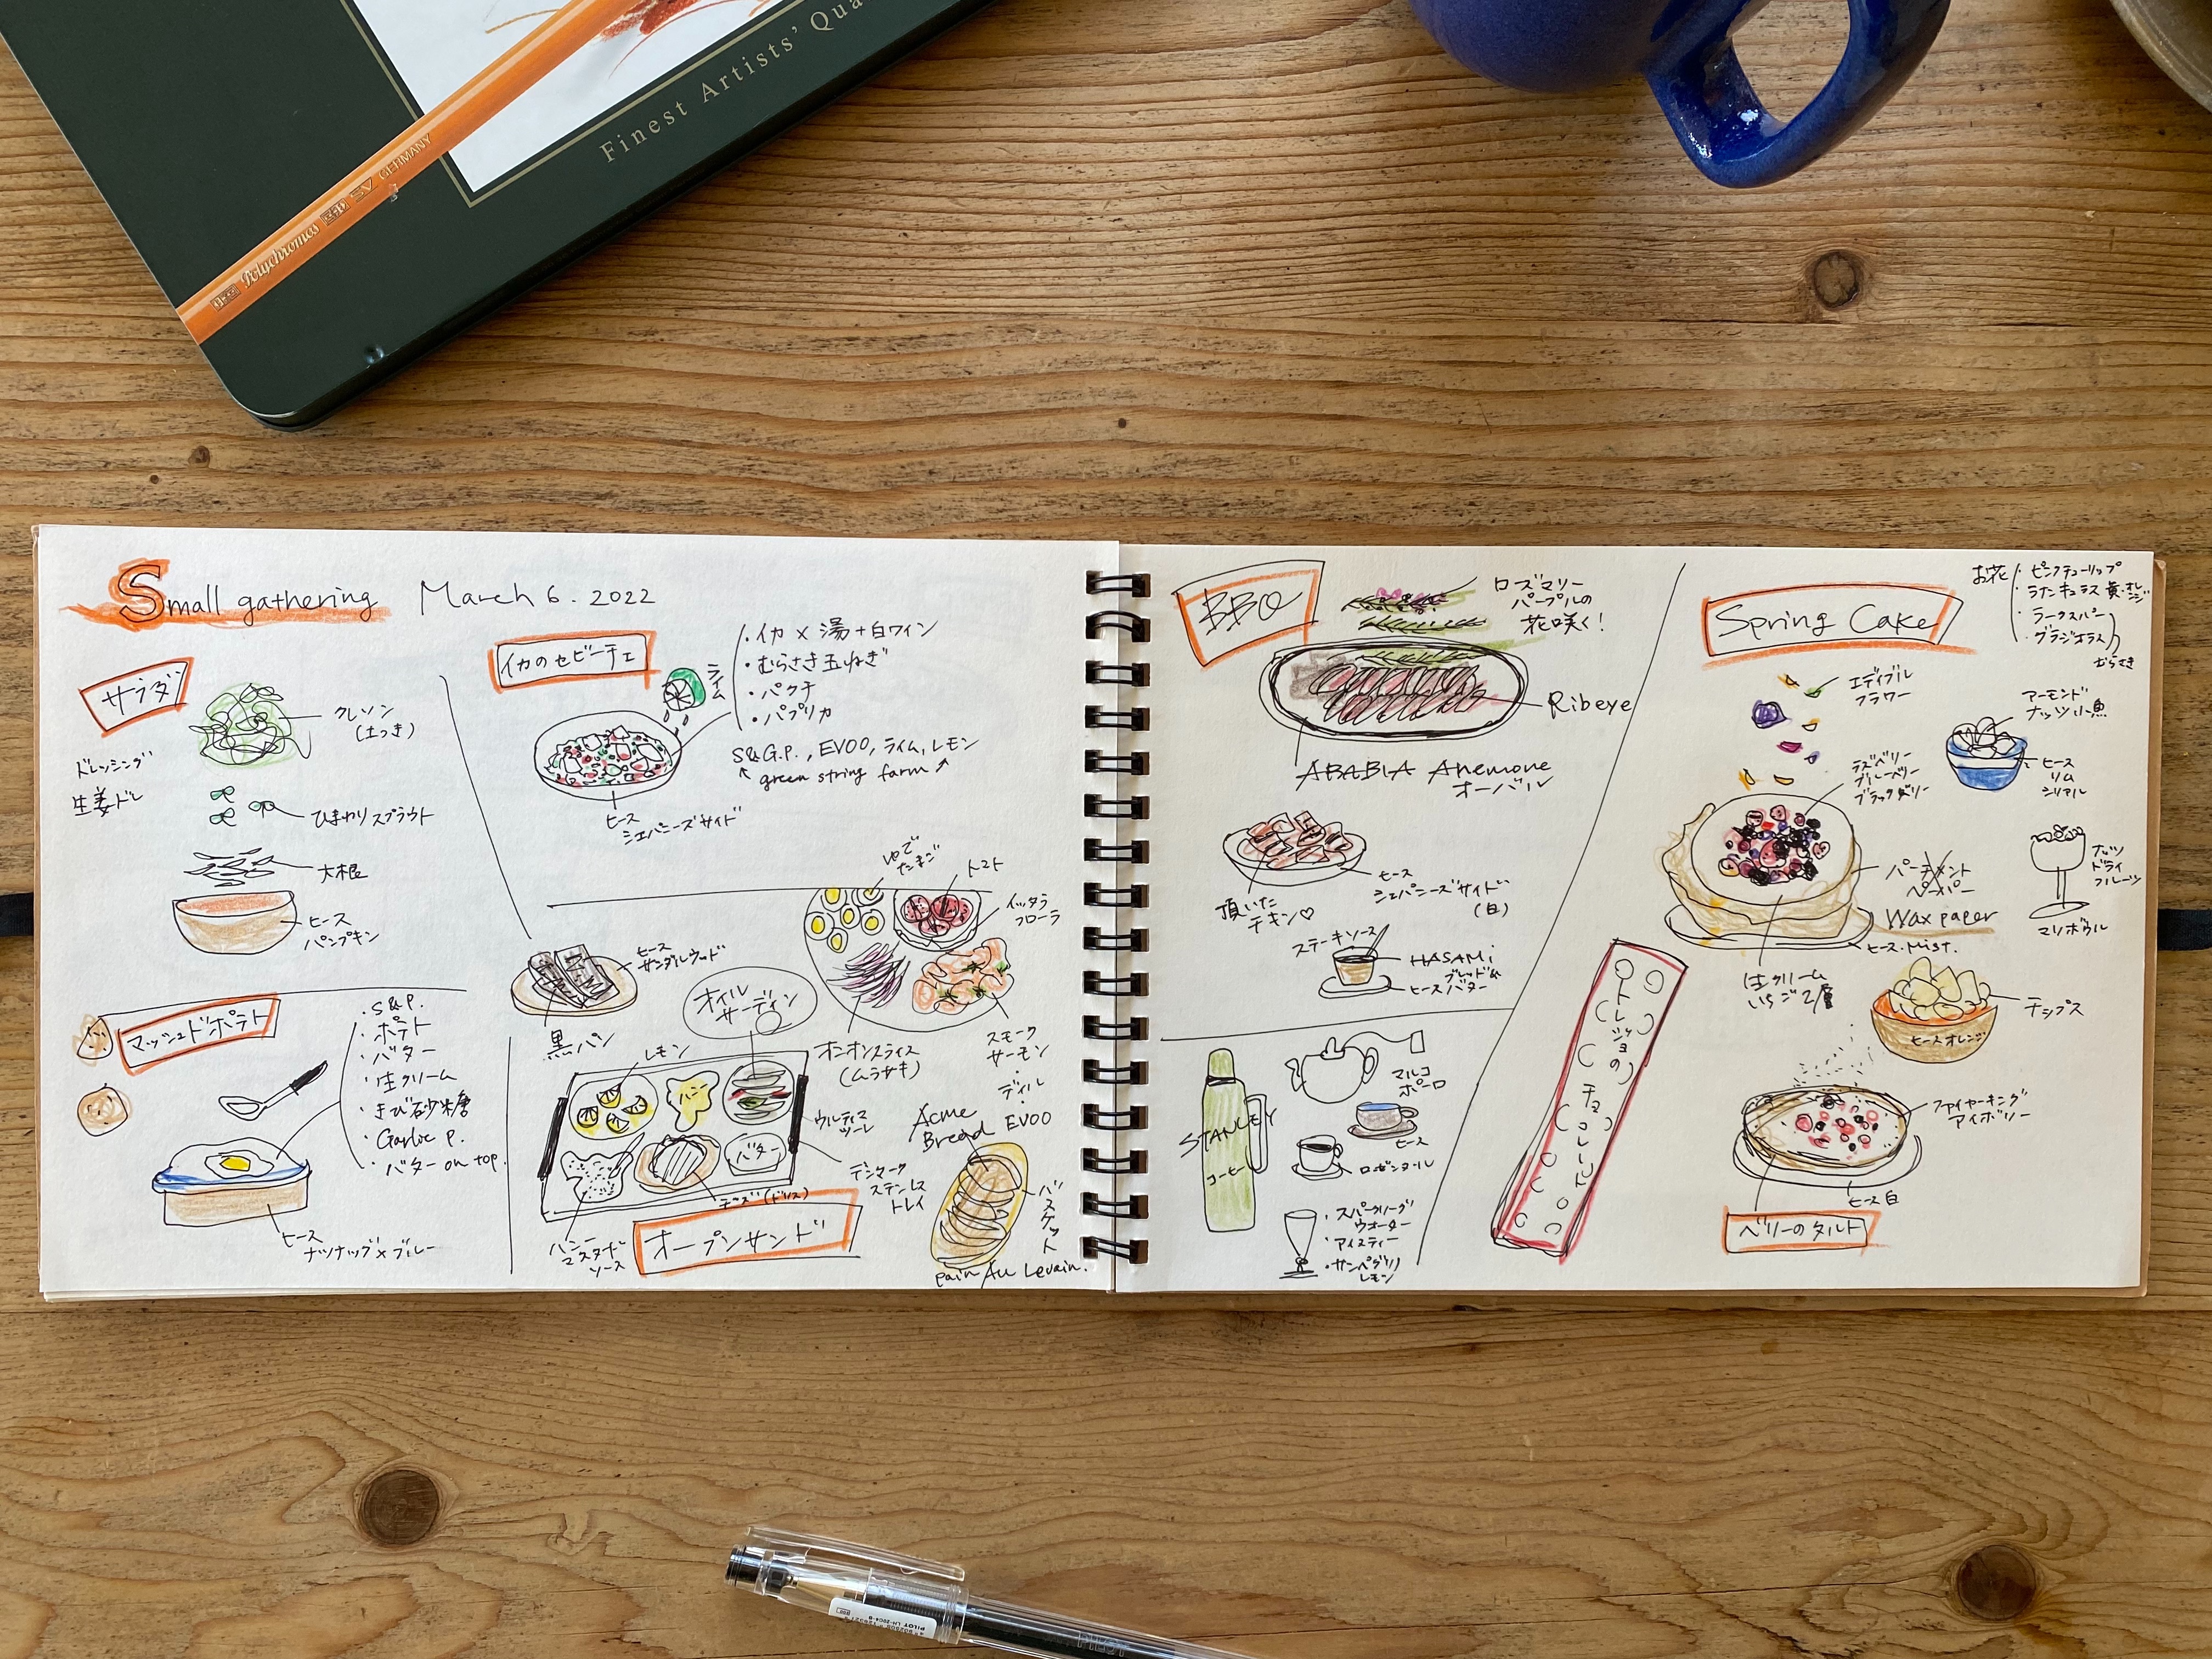 Finest Artists' Qua
Polychromos
GERMANY
Small gathering March 6. 2022
サラダ
クレソン
(土つき)
ドレッシング
生姜ドレ
ひまわりスプラウト
大根
ヒース
パンプキン
イカのセビーチェ
ライム
・イカ × 湯+白ワイン
・むらさき玉ねぎ
・パクチ
・パプリカ
S&G.P., EVOO, ライム, レモン
green string farm
ヒース
シェパニーズサイド
マッシュドポテト
・S&P.
・ポテト
・バター
・生クリーム
・きび砂糖
・Garlic P.
・バター on top.
ヒース
ナツナッグ×ブルー
ヒース
サンダルウッド
黒パン
オイル
サーディン
ゆで
たまご
トマト
イッタラ
フローラ
スモーク
サーモン
・
ディル
・
EVOO
オニオンスライス
(ムラサキ)
レモン
バター
チーズ
ハニー
マスタード
ソース
デンマーク
ステンレス
トレイ
オープンサンド
Acme
Bread
バスケット
Pain Au Levain.
BBQ
ローズマリー
パープルの
花咲く!
Ribeye
ARABIA Anemone
オーバル
頂いた
チキン♡
ヒース
シェパニーズサイド
(白)
ステーキソース
HASAMi
ヒース
バター
STANLEY
コーヒー
マルコ
ポーロ
ヒース
ローゼンタール
・スパークリーグ
ウォーター
・アイスティー
・サンペグリノ
レモン
チョコレート
Spring Cake
お花
・ピンクチューリップ
・ラナンキュラス 黄・オレンジ
・ラークスパー
・グラジオラス
むらさき
エディブル
フラワー
アーモンド
ナッツ小魚
ヒース
リム
シリアル
ラズベリー
ブルーベリー
ブラックベリー
パーチメント
ペーパー
Wax paper
ヒース・Mist.
生クリーム
いちご2層
ナッツ
ドライ
フルーツ
マリボウル
チップス
ヒースオレンジ
ファイヤーキング
アイボリー
ヒース白
ベリーのタルト
PILOT